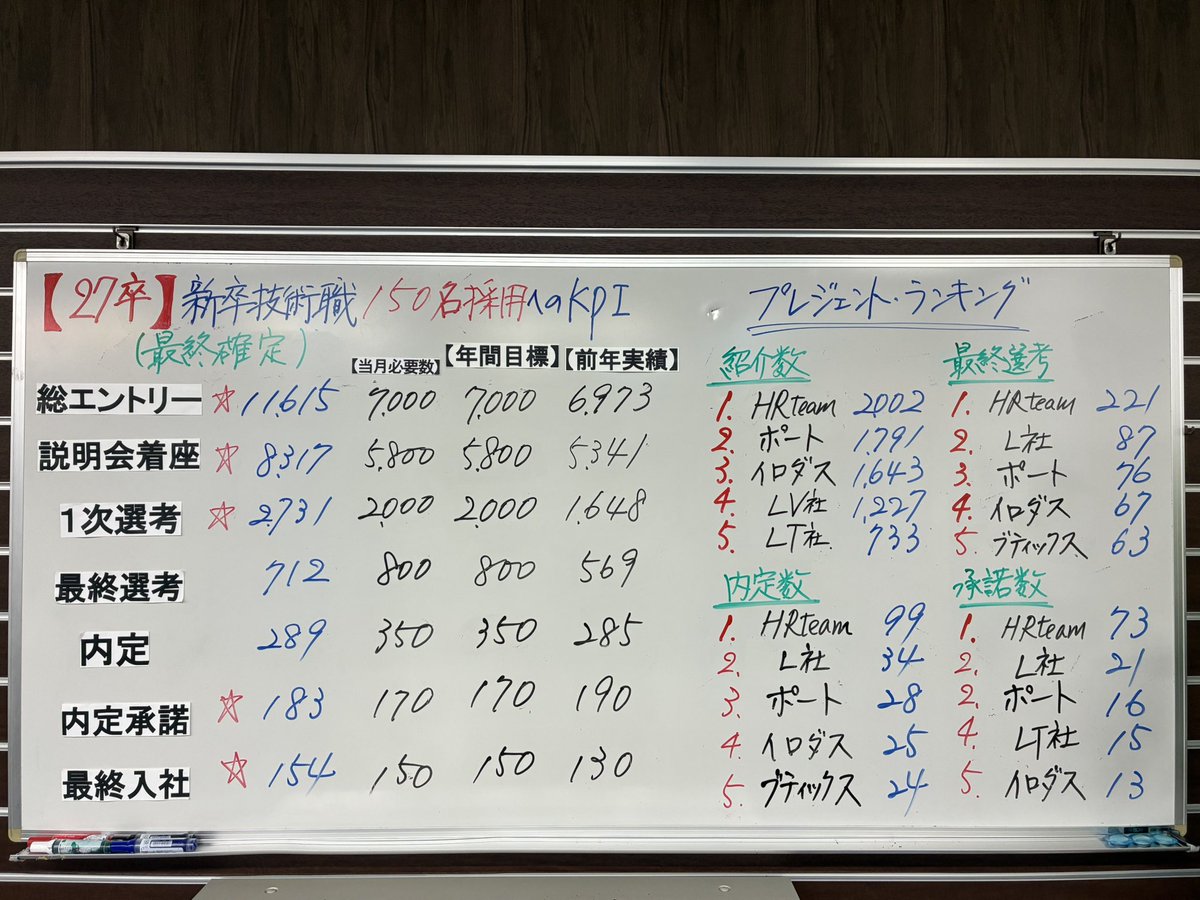 【27卒】新卒技術職150名採用へのKPI
(最終確定)
【当月必要数】【年間目標】【前年実績】
総エントリー ☆ 11,615 7,000 7,000 6,973
説明会着座 ☆ 8,317 5,800 5,800 5,341
1次選考 ☆ 2,731 2,000 2,000 1,648
最終選考 712 800 800 569
内定 289 350 350 285
内定承諾 ☆ 183 170 170 190
最終入社 ☆ 154 150 150 130
プレジェント・ランキング
紹介数
1. HRteam 2,002
2. ポート 1,791
3. イロダス 1,643
4. LV社 1,227
5. LT社 733
最終選考
1. HRteam 221
2. L社 87
3. ポート 76
4. イロダス 67
5. ブティックス 63
内定数
1. HRteam 99
2. L社 34
3. ポート 28
4. イロダス 25
5. ブティックス 24
承諾数
1. HRteam 73
2. L社 21
2. ポート 16
4. LT社 15
5. イロダス 13